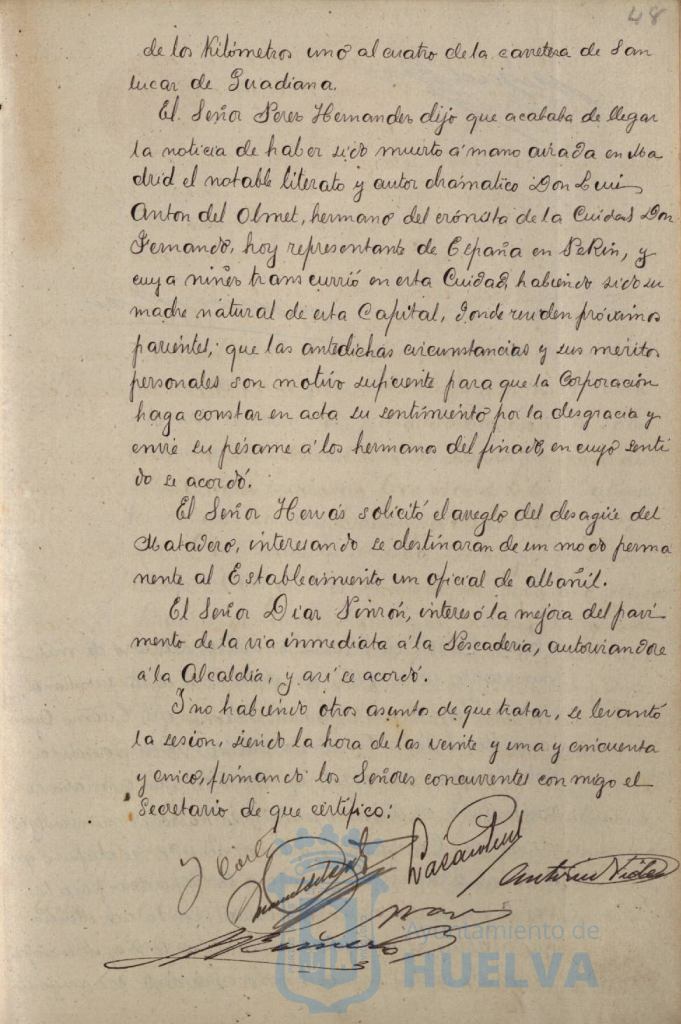 48
de los Kilómetros uno al cuatro de la carretera de San
lucar de Guadiana.
El Señor Peres Hernandes dijo que acababa de llegar
la noticia de haber sido muerto á mano airada en Ma
drid el notable literato y autor dramatico Don Luis
Anton del Olmet, hermano del cronista de la Cuidad Don
Fernando, hoy representante de España en Pekin, y
cuya niñes transcurrió en esta Cuidad, habiendo sido su
madre natural de esta Capital, donde residen próximos
parientes; que las antedichas circunstancias y sus meritos
personales son motivo suficiente para que la Corporación
haga constar en acta su sentimiento por la desgracia y
envie su pésame á los hermanos del finado, en cuyo senti
do se acordó.
El Señor Hervás solicitó el arreglo del desagüe del
Matadero, interesando se destinaran de un modo perma
nente al Establecimiento un oficial de albañil.
El Señor Diaz Pinzón, interesó la mejora del pavi
mento de la via inmediata á la Pescaderia, autorizandose
á la Alcaldía, y así se acordó.
I no habiendo otros asuntos de que tratar, se levantó
la sesion, siendo la hora de las veinte y una y cincuenta
y cinco, firmando los Señores concurrentes conmigo el
Secretario de que certifico:
Antonio Vides
Ayuntamiento de
HUELVA